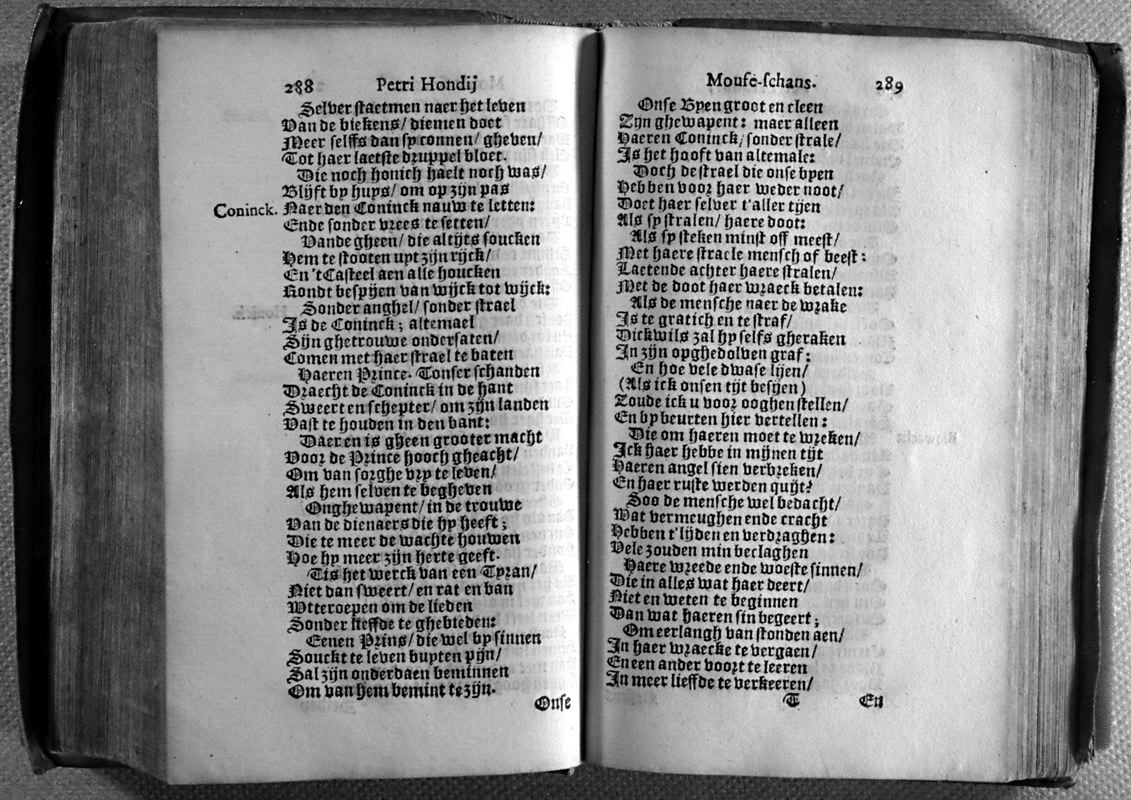 288 Petri Hondij
Selver staetmen naer het leven
Van de biekens/ diemen doet
Meer selffs dan sy connen/ gheven/
Tot haer laetste druppel bloet.
Die noch honich haelt noch was/
Blijft by huys/ om op zijn pas
Coninck. Naer den Coninck nauw te letten:
Ende sonder vrees te setten/
Vande gheen/ die altijts soucken
Hem te stooten uyt zijn rijck/
En 't Casteel aen alle houcken
Kondt bespyen van wijck tot wijck:
Sonder anghel/ sonder strael
Is de Coninck; altemael
Sijn ghetrouwe ondersaten/
Comen met haer strael te baten
Haeren Prince. Tonser schanden
Draecht de Coninck in de hant
Sweert en schepter/ om zijn landen
Vast te houden in den bant:
Daer en is gheen grooter macht
Voor de Prince hooch gheacht/
Om van sorghe vry te leven/
Als hem selven te begheven
Onghewapent/ in de trouwe
Van de dienaers die hy heeft;
Die te meer de wachte houwen
Hoe hy meer zijn herte geeft.
Tis het werck van een Tyran/
Niet dan sweert/ en rat en ban
Wtteroepen om de lieden
Sonder lieffde te ghebieden:
Eenen Prins/ die wel by sinnen
Souckt te leven buyten pijn/
Sal zijn onderdaen beminnen
Om van hem bemint te zijn.
Onse
Mouse-schans. 289
Onse Byen groot en cleen
Zyn ghewapent: maer alleen
Haeren Coninck/ sonder strale/
Is het hooft van altemale:
Doch de strael die onse byen
Hebben voor haer weder noot/
Doet haer selver t'aller tijen
Als sy stralen/ haere doot:
Als sy steken minst off meest/
Met haere straele mensch of beest:
Laetende achter haere stralen/
Met de doot haer wraeck betalen:
Als de mensche naer de wrake
Is te gratich en te straf/
Dickwils zal hy selfs gheraken
In zijn opghedolven graf:
En hoe vele dwase lijen/
(Als ick onsen tijt besijen)
Zoude ick u voor ooghen stellen/
En by beurten hier vertellen:
Die om haeren moet te wreken/
Ick haer hebbe in mijnen tijt
Haeren angel sien verbreken/
En haer ruste werden quijt?
Soo de mensche wel bedacht/
Wat vermeughen ende cracht
Hebben t'lijden en verdraghen:
Vele zouden min beclaghen
Haere wreede ende woeste sinnen/
Die in alles wat haer deert/
Niet en weten te beginnen
Dan wat haeren sin begeert;
Om eerlangh van stonden aen/
In haer wraecke te vergaen/
En een ander voort te leeren
In meer lieffde te verkeeren/
T En